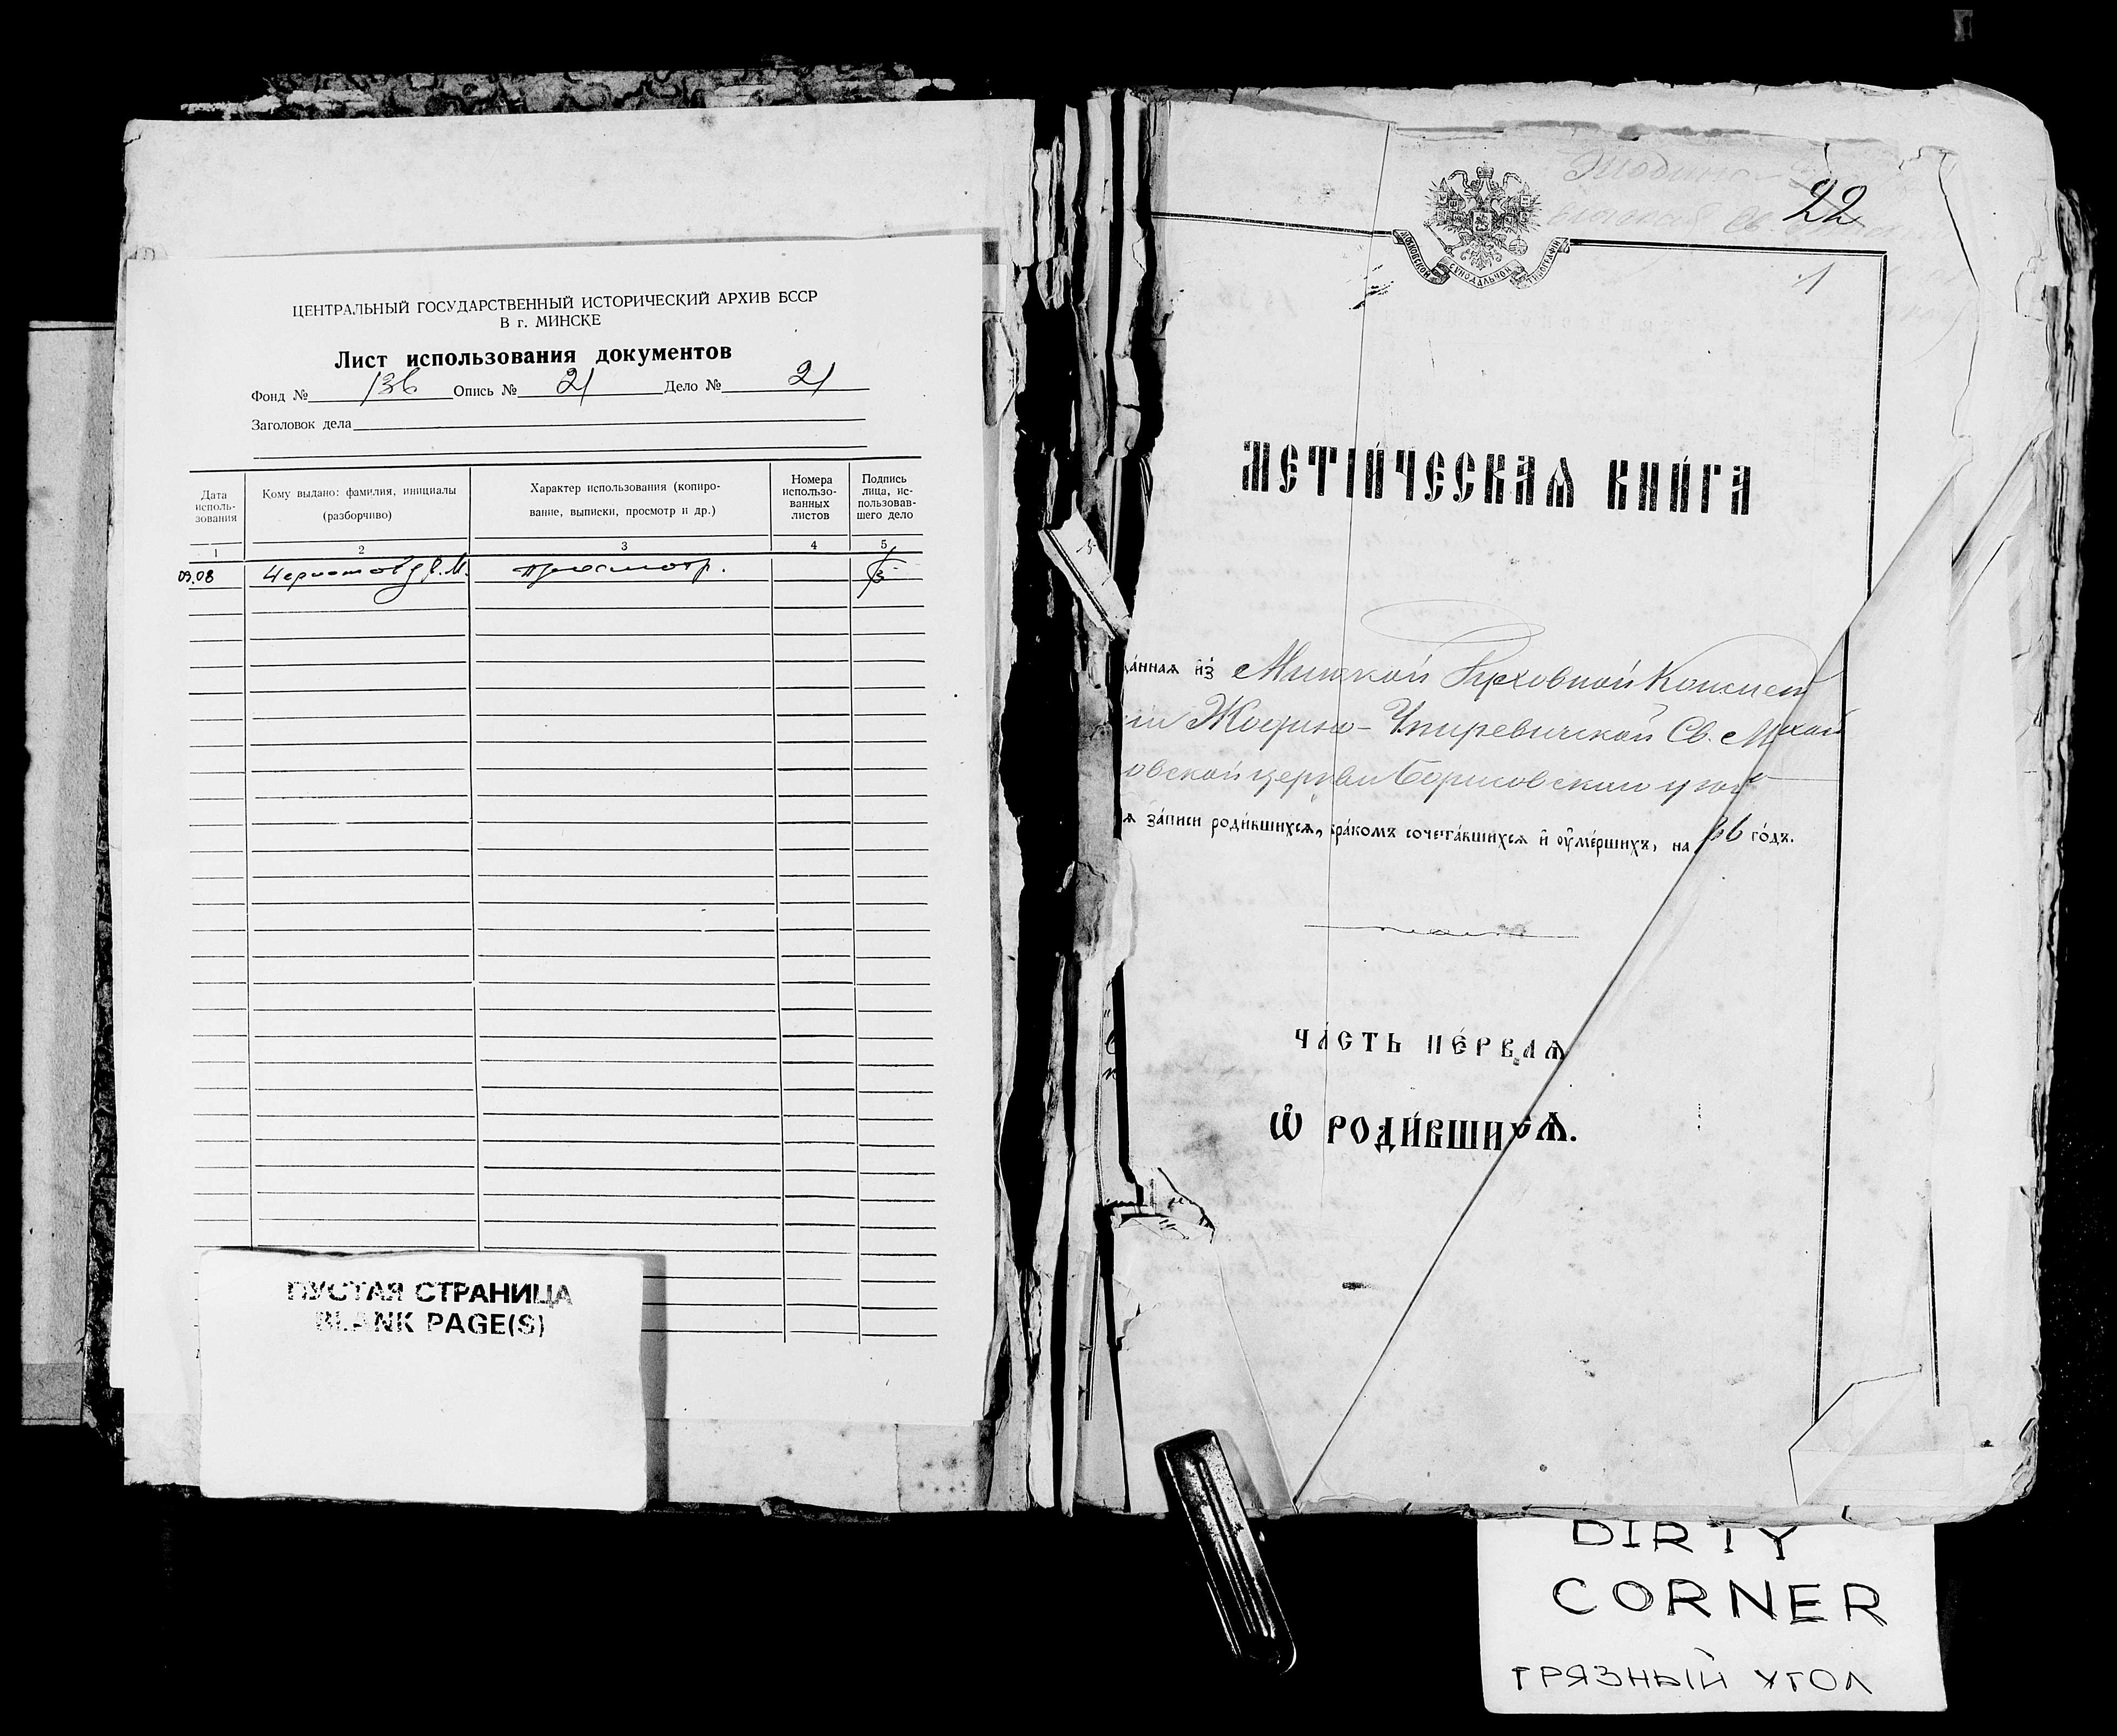 ЦЕНТРАЛЬНЫЙ ГОСУДАРСТВЕННЫЙ ИСТОРИЧЕСКИЙ АРХИВ БССР
В г. МИНСКЕ
Лист использования документов
Фонд № 136 Опись № 21 Дело № 21
Заголовок дела
Дата исполь-зования
Кому выдано: фамилия, инициалы (разборчиво)
Характер использования (копиро-вание, выписки, просмотр и др.)
Номера использо-ванных листов
Подпись лица, ис-пользовав-шего дело
1 2 3 4 5
09.08 просмотр.
ПУСТАЯ СТРАНИЦА
BLANK PAGE(S)
22
1
МОСКОВСКОЙ СѴНОДАЛЬНОЙ ТИПОГРАФІИ
МЕТРИ́ЧЕСКАЯ КНИ́ГА
да́нная и҆з̾ Минской Духовной Консист
іи Жодино-Чмиревичской Св. Михай
овской церкви Борисовскаго уезда
я за́писи роди́вшихсѧ, бра́комъ сочета́вшихсѧ и҆ оу҆ме́ршихъ, на 86 го́дъ.
ЧА́СТЬ ПЕ́РВАѦ
Ѡ҆ РОДИ́ВШИХСѦ.
DIRTY
CORNER
ГРЯЗНЫЙ УГОЛ